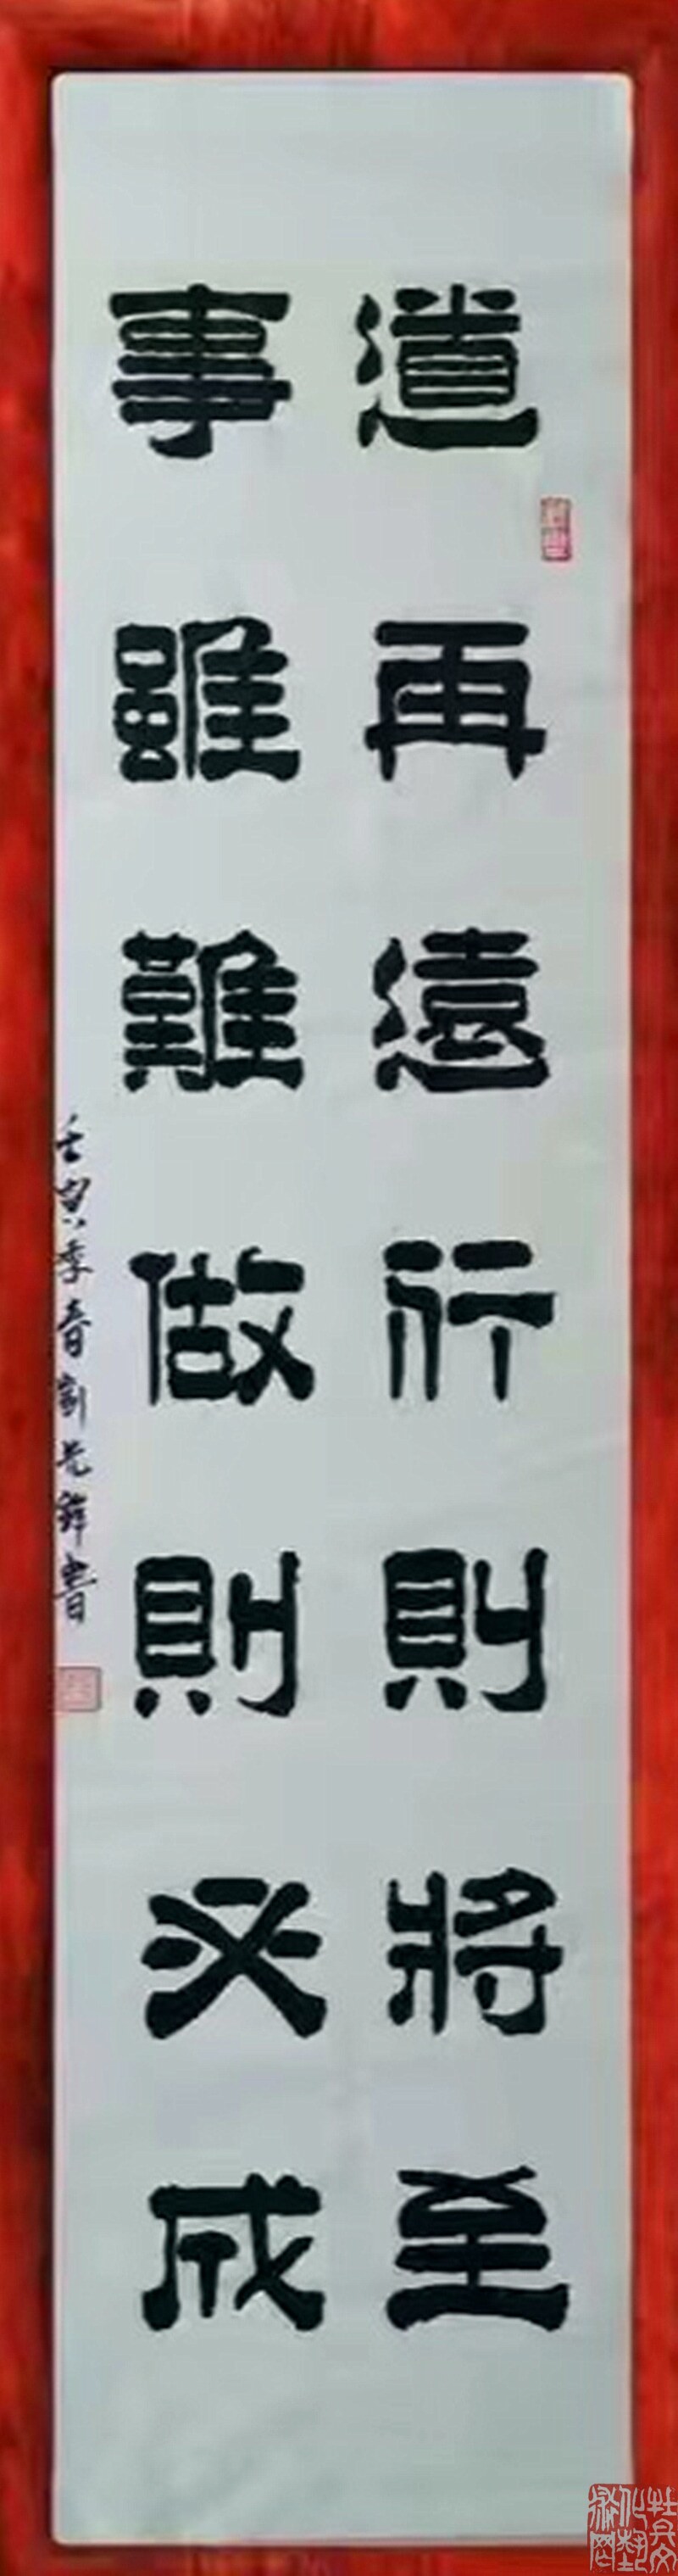 道再遠行則將至
事雖難做則必成
壬寅季春劉光鋒書